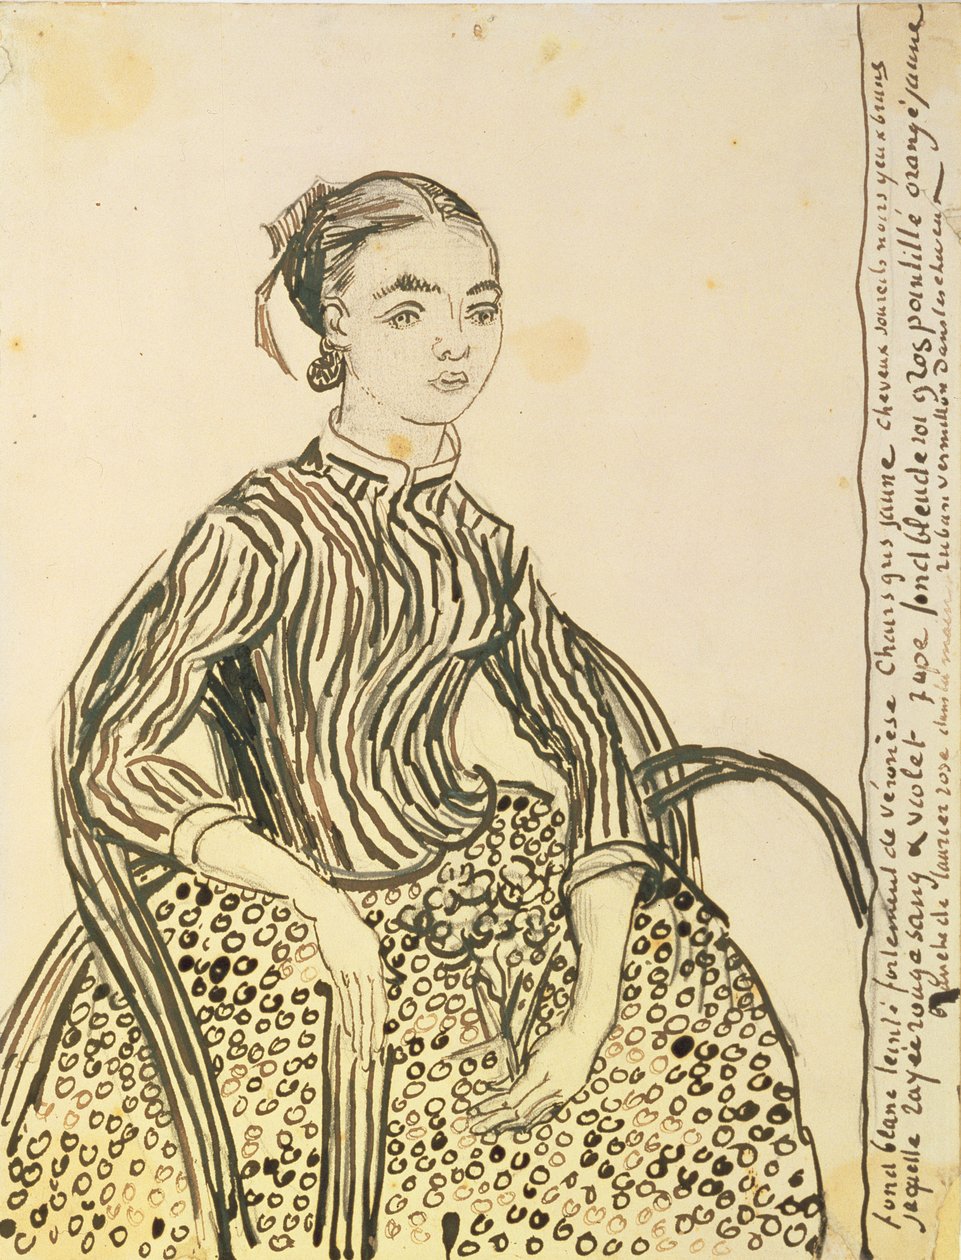 fond blanc teinté fortement de véronèse Chairs gris jaune cheveux sourcils noirs yeux bruns
jaquette rayée rouge sang & violet jupe fond bleu de roi gros pointillé orangé jaune
Branche de laurier rose dans la main ruban vermillon dans les cheveux